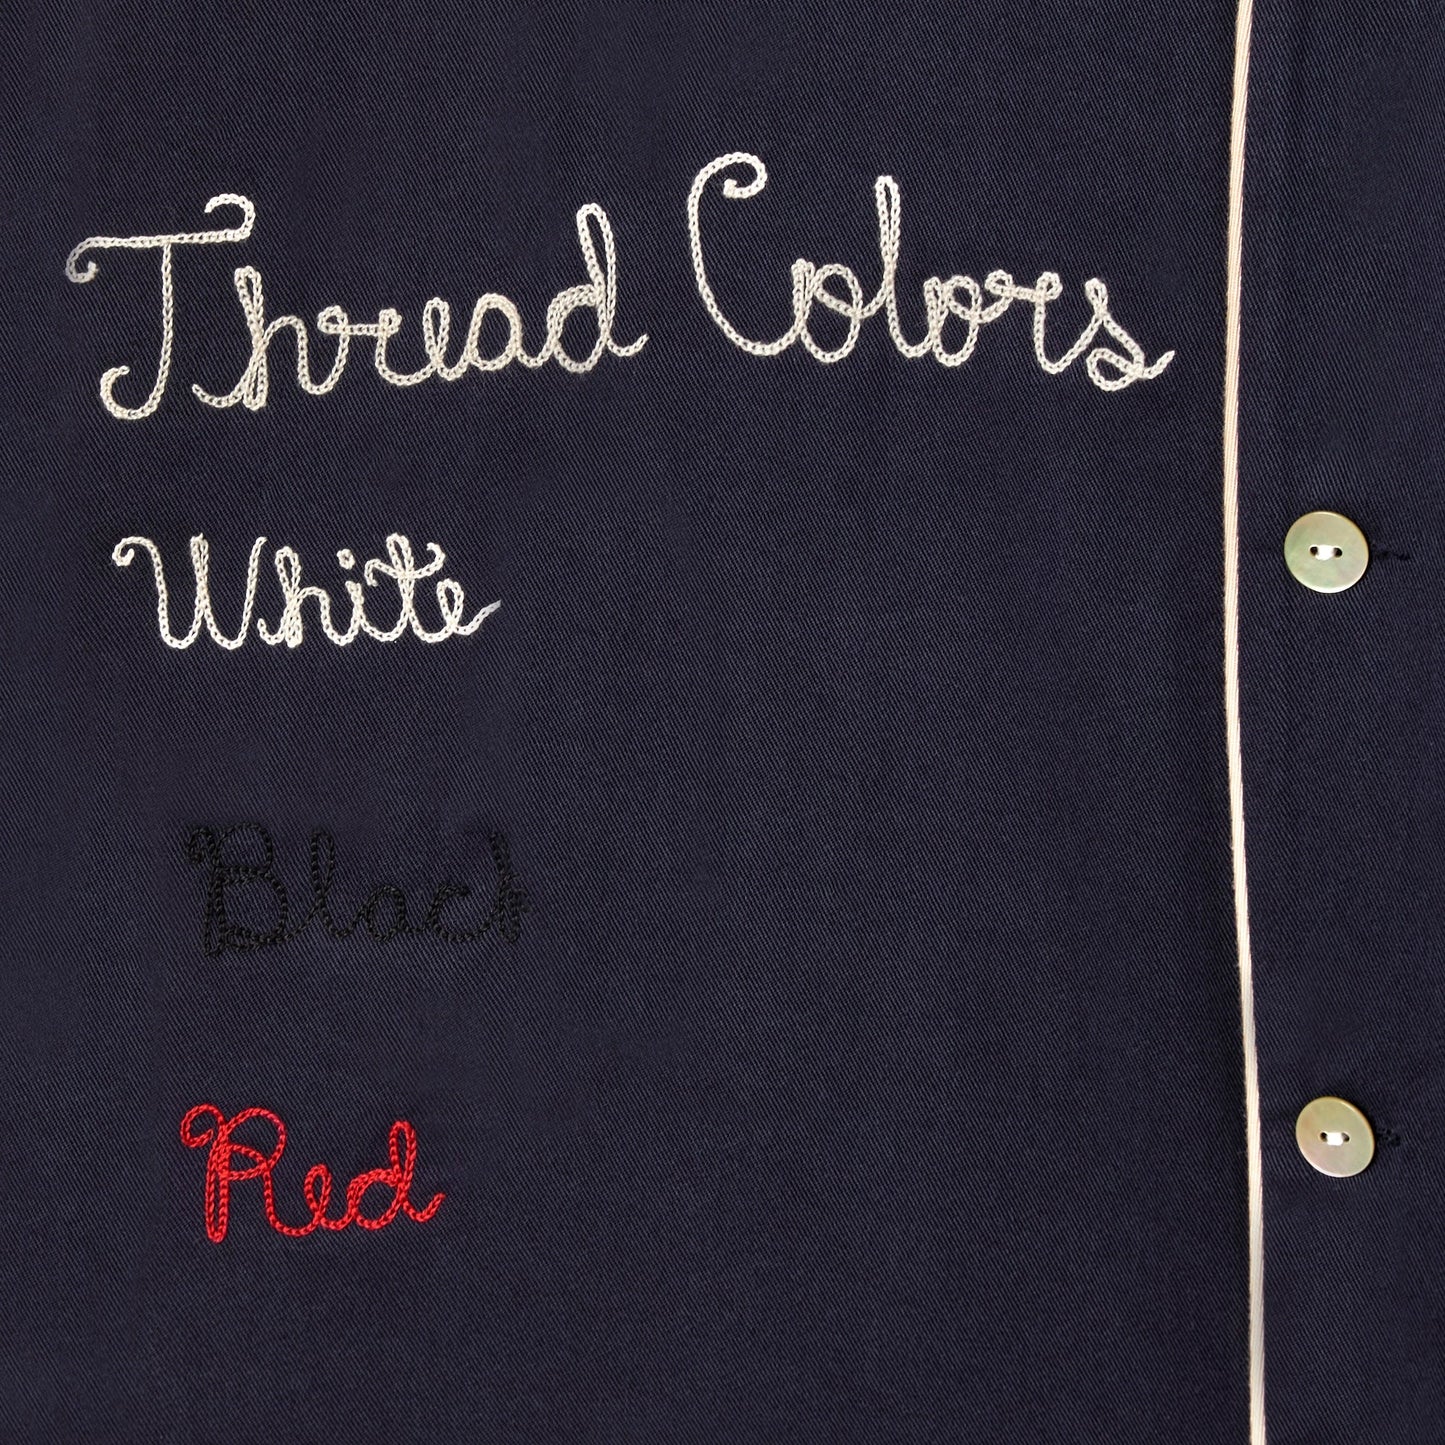 Thread Colors
White
Black
Red